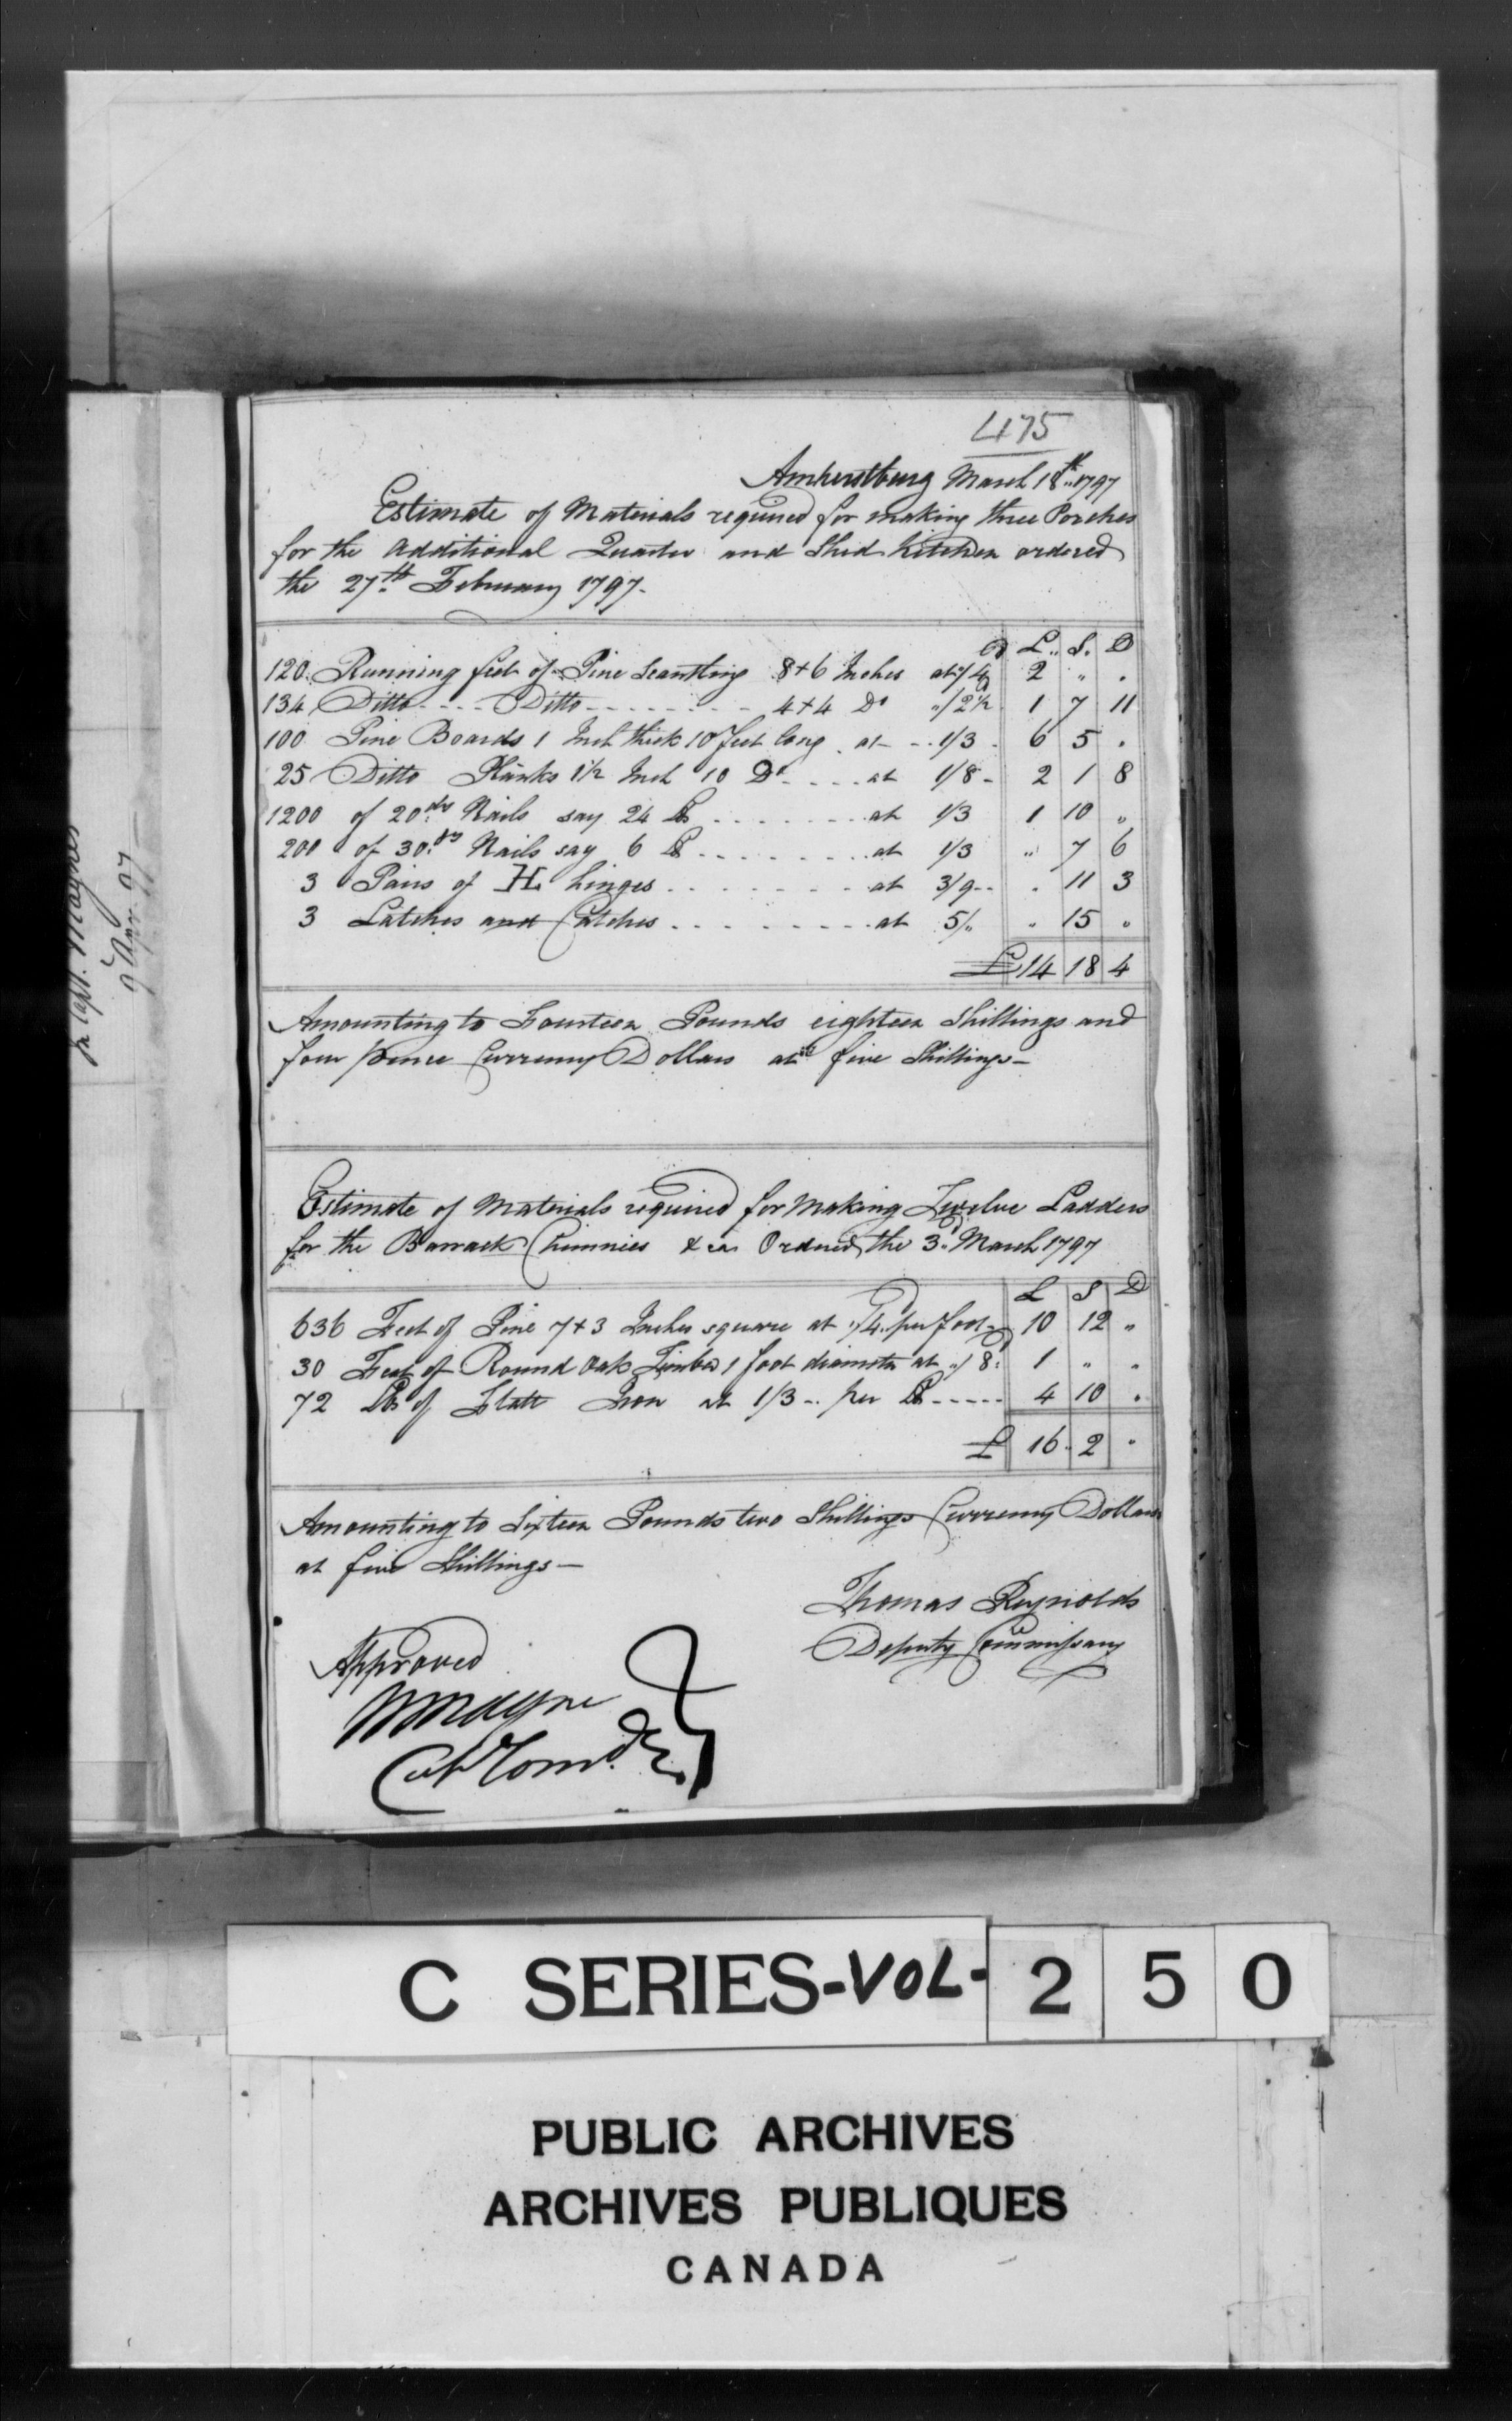 475
Amherstburg March 18th 1797
Estimate of Materials required for making three Porches
for the Additional Quarter and Shed kitchen ordered
the 27th February 1797.
D L.. S. D
120. Running feet of Pine Scantling 8+6 Inches at "/4 2 " .
134 Ditto - - - - Ditto - - - - - - - 4+4 Do "/2½ 1 7 11
100 Pine Boards 1 Inch thick 10 feet long . at - .. 1/3 . 6 5 .
25 Ditto Planks 1½ Inch 10 Do - . . . at 1/8 - 2 1 8
1200 of 20.dy Nails say 24 lb . . . . . . . at 1/3 1 10 "
200 of 30.dy Nails say 6 lb . . . . . . . at 1/3 " 7 6
3 Pairs of H hinges . . . . . . . at 3/9 - - . 11 3
3 Latches and Catches . . . . . . . at 5/" " 15 "
£ 14 18 4
Amounting to Fourteen Pounds eighteen Shillings and
four pence Currency Dollars at five Shillings -
Estimate of Materials required for Making Twelve Ladders
for the Barrack Chimnies & ca Ordered the 3d March 1797
L S D
636 Feet of Pine 7+3 Inches square at "/4 per foot - 10 12 "
30 Feet of Round Oak Timber 1 foot diameter at "/8 : 1 " "
72 lbs of Flatt Iron at 1/3 .. per lb - - - - - 4 10 .
£ 16 . 2 "
Amounting to Sixteen Pounds two Shillings Currency Dollars
at five Shillings -
Thomas Reynolds
Deputy Commissary
Approved
W Mayne
Capt Comd.
Capt. Maynes
9 Apr. 97
C SERIES-VOL- 2 5 0
PUBLIC ARCHIVES
ARCHIVES PUBLIQUES
CANADA